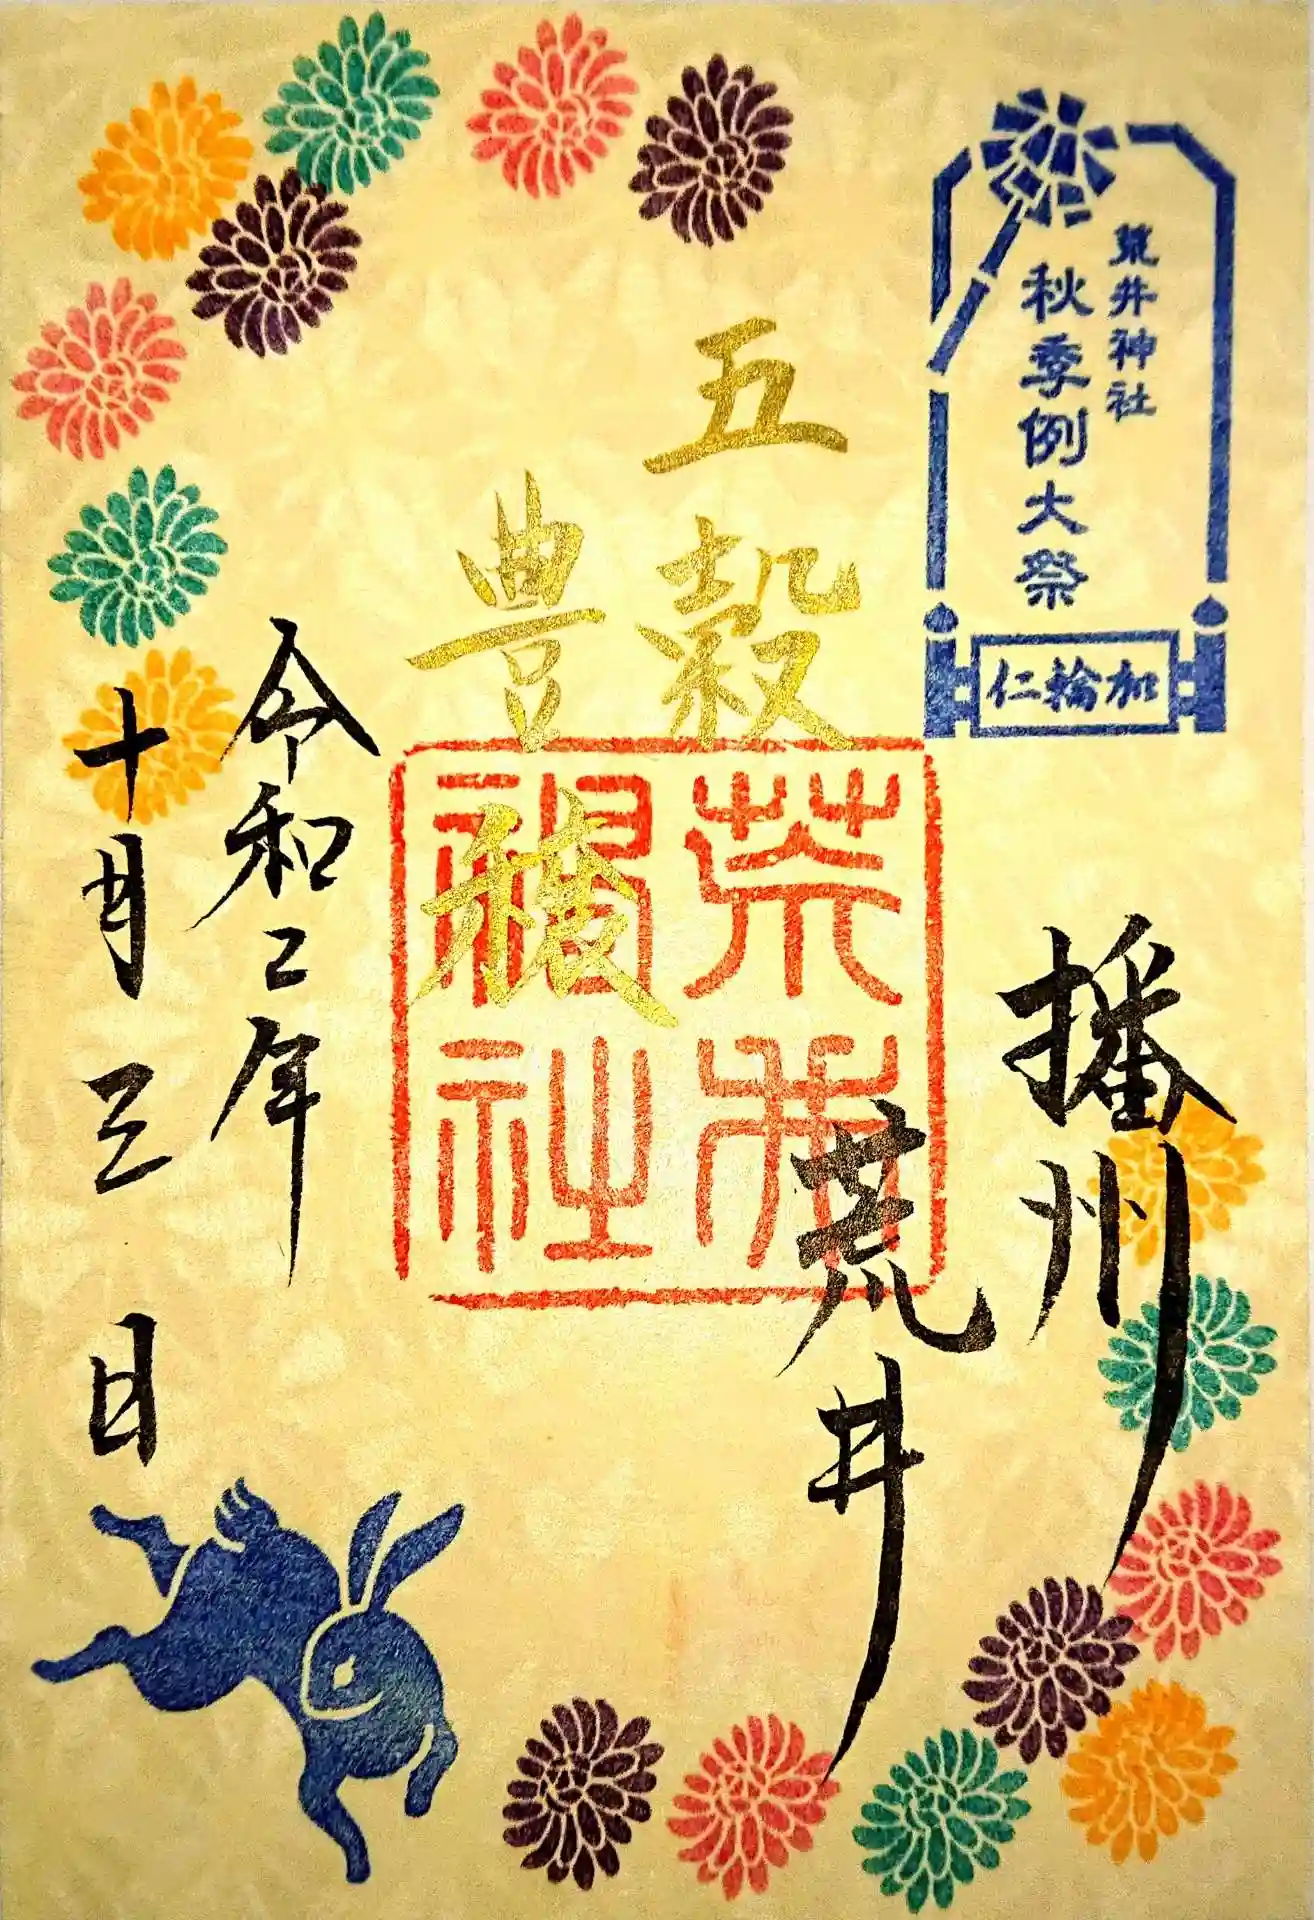 荒井神社
秋季例大祭
仁輪加
播州
荒井
五穀
豊穣
荒井
神社
令和二年
十月三日